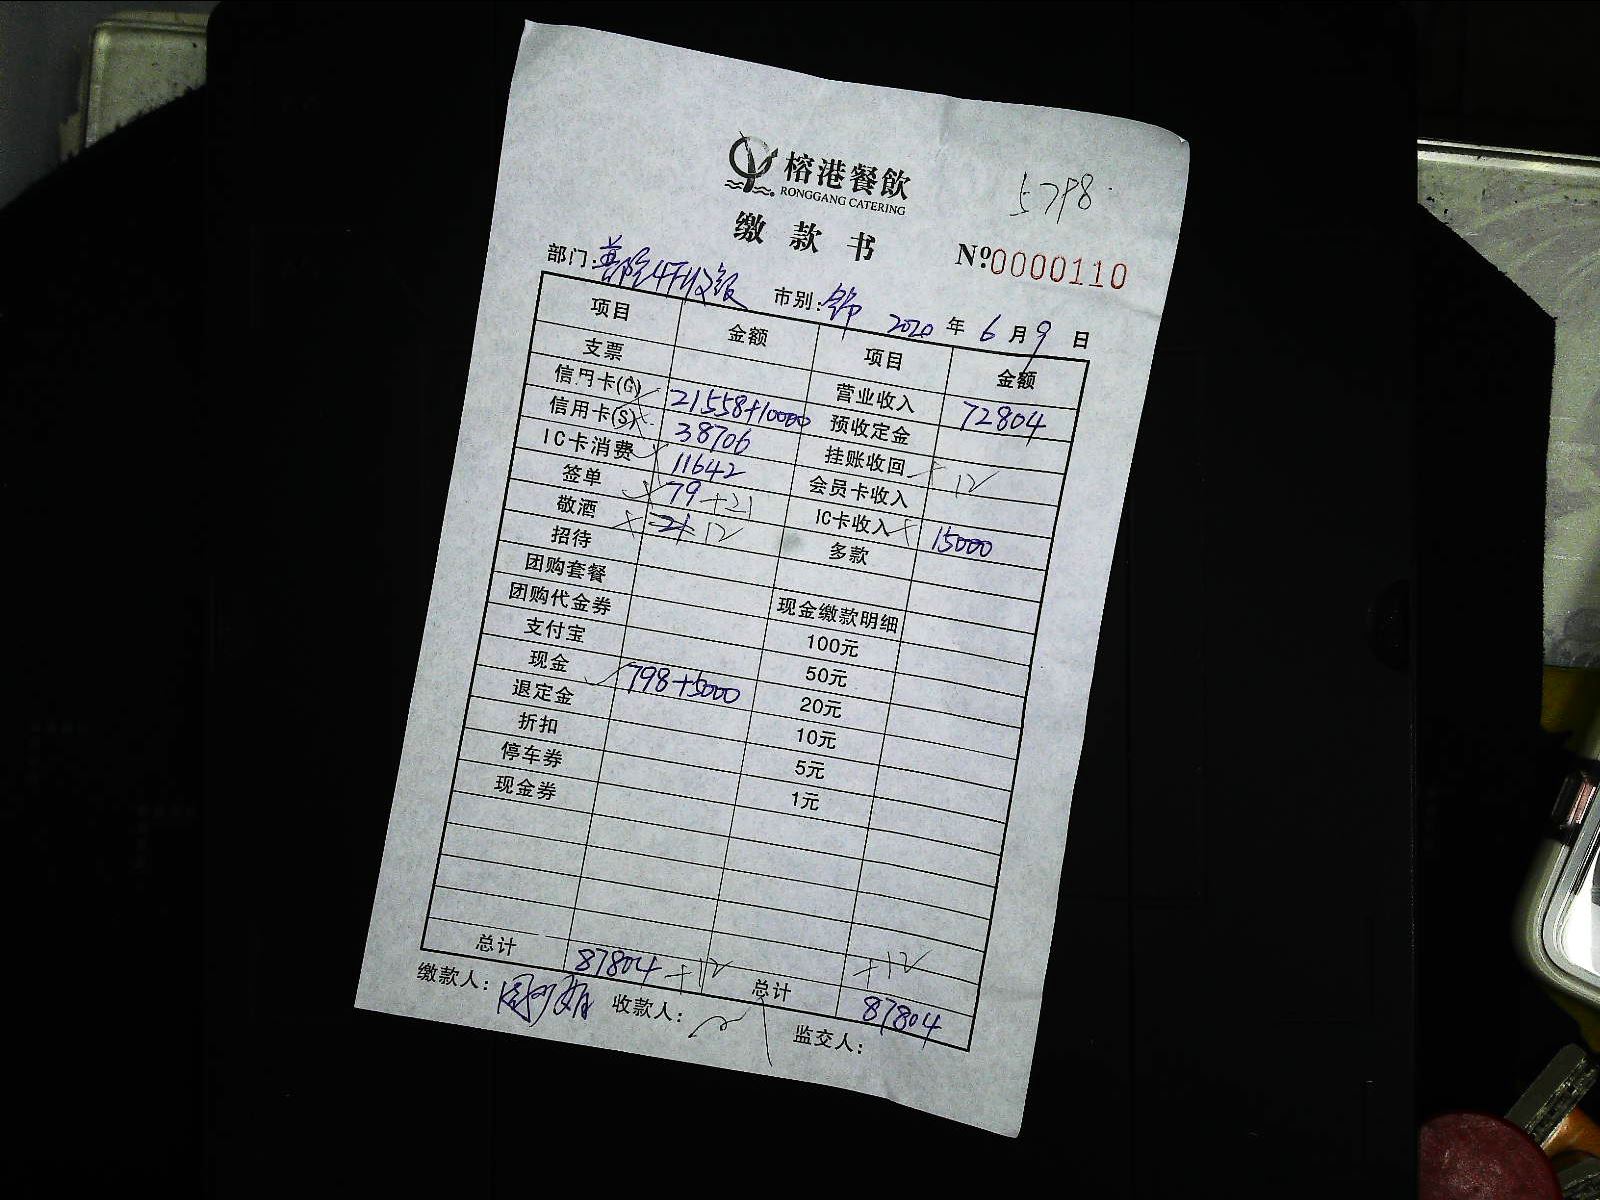 榕港餐飲
RONGGANG CATERING
5798
缴款书
Nº0000110
部门: 市别: 2020年6月9日
项目 金额 项目 金额
支票 营业收入 72804
信用卡(G) 21558+10000 预收定金
信用卡(S) 38706 挂账收回 +12
IC卡消费 11642 会员卡收入
签单 79+21 IC卡收入 15000
敬酒 21 12 多款
招待
团购套餐 现金缴款明细
团购代金券 100元
支付宝 50元
现金 798+5000 20元
退定金 10元
折扣 5元
停车券 1元
现金券
总计 87804+12 总计 +12 87804
缴款人: 收款人: 监交人: